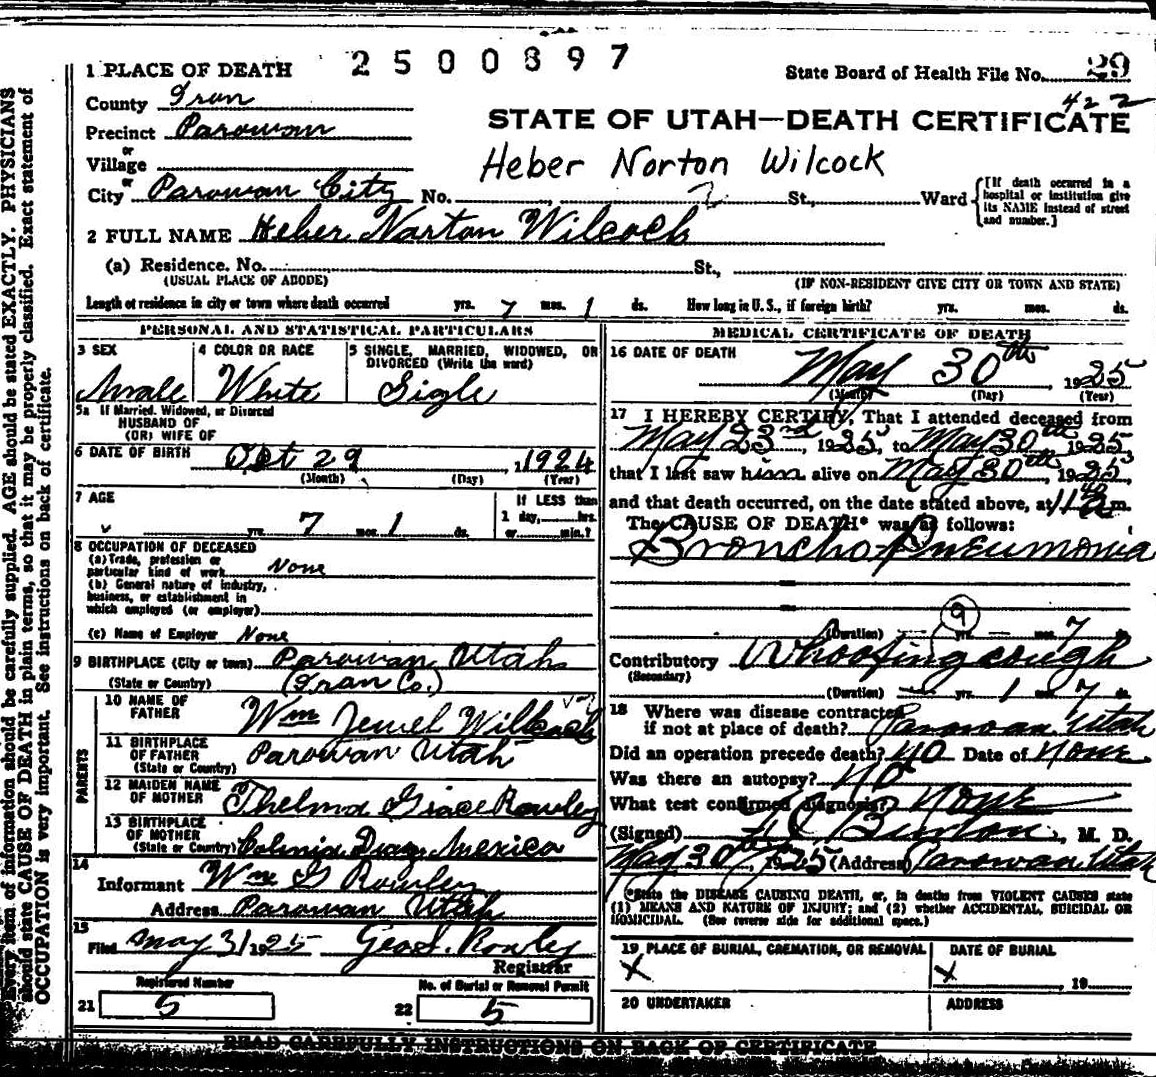 2500897
1 PLACE OF DEATH
State Board of Health File No. 29
422
County Iron
STATE OF UTAH—DEATH CERTIFICATE
Precinct Parowan
or
Village
Heber Norton Wilcock
or
City Parowan City No. St., Ward
[If death occurred in a hospital or institution give its NAME instead of street and number.]
2 FULL NAME Heber Norton Wilcock
(a) Residence. No. St.,
(USUAL PLACE OF ABODE) (IF NON-RESIDENT GIVE CITY OR TOWN AND STATE)
Length of residence in city or town where death occurred yrs. 7 mos. 1 ds. How long in U. S., if foreign birth? yrs. mos. ds.
PERSONAL AND STATISTICAL PARTICULARS
3 SEX 4 COLOR OR RACE 5 SINGLE, MARRIED, WIDOWED, OR
DIVORCED (Write the word)
Male White Sigle
5a If Married, Widowed, or Divorced
HUSBAND OF
(OR) WIFE OF
6 DATE OF BIRTH Oct 29, 1924
(Month) (Day) (Year)
7 AGE
If LESS than
1 day, hrs.
yrs. 7 mos. 1 ds. or min.?
8 OCCUPATION OF DECEASED
(a) Trade, profession or
particular kind of work None
(b) General nature of industry,
business, or establishment in
which employed (or employer)
(c) Name of Employer None
9 BIRTHPLACE (City or town) Parowan Utah
(State or Country) (Iron Co.)
PARENTS
10 NAME OF
FATHER Wm Jewel Wilcock
11 BIRTHPLACE
OF FATHER Parowan Utah
(State or Country)
12 MAIDEN NAME
OF MOTHER Thelma Grace Rowley
13 BIRTHPLACE
OF MOTHER
(State or Country) Colonia Diaz, Mexico
14
Informant Wm G Rowley
Address Parowan Utah
15
Filed May 31 1925 Geo. S. Rowley
Registrar
Registered Number No. of Burial or Removal Permit
21 5 22 5
MEDICAL CERTIFICATE OF DEATH
16 DATE OF DEATH
May 30th, 1925
(Month) (Day) (Year)
17 I HEREBY CERTIFY, That I attended deceased from
May 23rd, 1925, to May 30th, 1925,
that I last saw him alive on May 30th, 1925,
and that death occurred, on the date stated above, at 11 a m.
The CAUSE OF DEATH* was as follows:
Broncho-Pneumonia
9
(Duration) yrs. mos. 7 ds.
Contributory Whoofing cough
(Secondary)
(Duration) yrs. 1 mos. 7 ds.
18 Where was disease contracted
if not at place of death? Parowan Utah
Did an operation precede death? no Date of None
Was there an autopsy? no
What test confirmed diagnosis? None
(Signed) Benton, M. D.
May 30, 1925 (Address) Parowan Utah
*State the DISEASE CAUSING DEATH, or, in deaths from VIOLENT CAUSES state
(1) MEANS AND NATURE OF INJURY; and (2) whether ACCIDENTAL, SUICIDAL OR
HOMICIDAL. (See reverse side for additional space.)
19 PLACE OF BURIAL, CREMATION, OR REMOVAL DATE OF BURIAL
X X
19
20 UNDERTAKER ADDRESS
READ CAREFULLY INSTRUCTIONS ON BACK OF CERTIFICATE
Every item of information should be carefully supplied. AGE should be stated EXACTLY. PHYSICIANS
should state CAUSE OF DEATH in plain terms, so that it may be properly classified. Exact statement of
OCCUPATION is very important. See instructions on back of certificate.